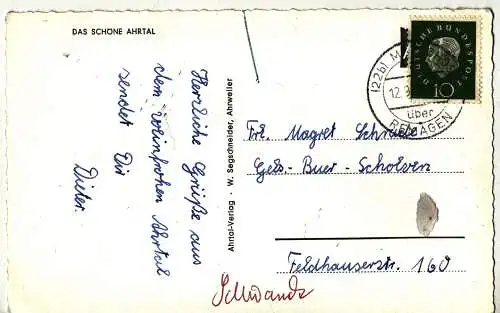 DAS SCHÖNE AHRTAL
Herzliche Grüße aus
dem weinfrohen Ahrtal
sendet Dir
Dieter.
Ahrtal-Verlag · W. Segschneider, Ahrweiler
DEUTSCHE BUNDESPOST
10
(22b) M
12.
über
REMAGEN
Frl. Magret Schulte
Gels.-Buer-Scholven
Feldhauserstr. 160